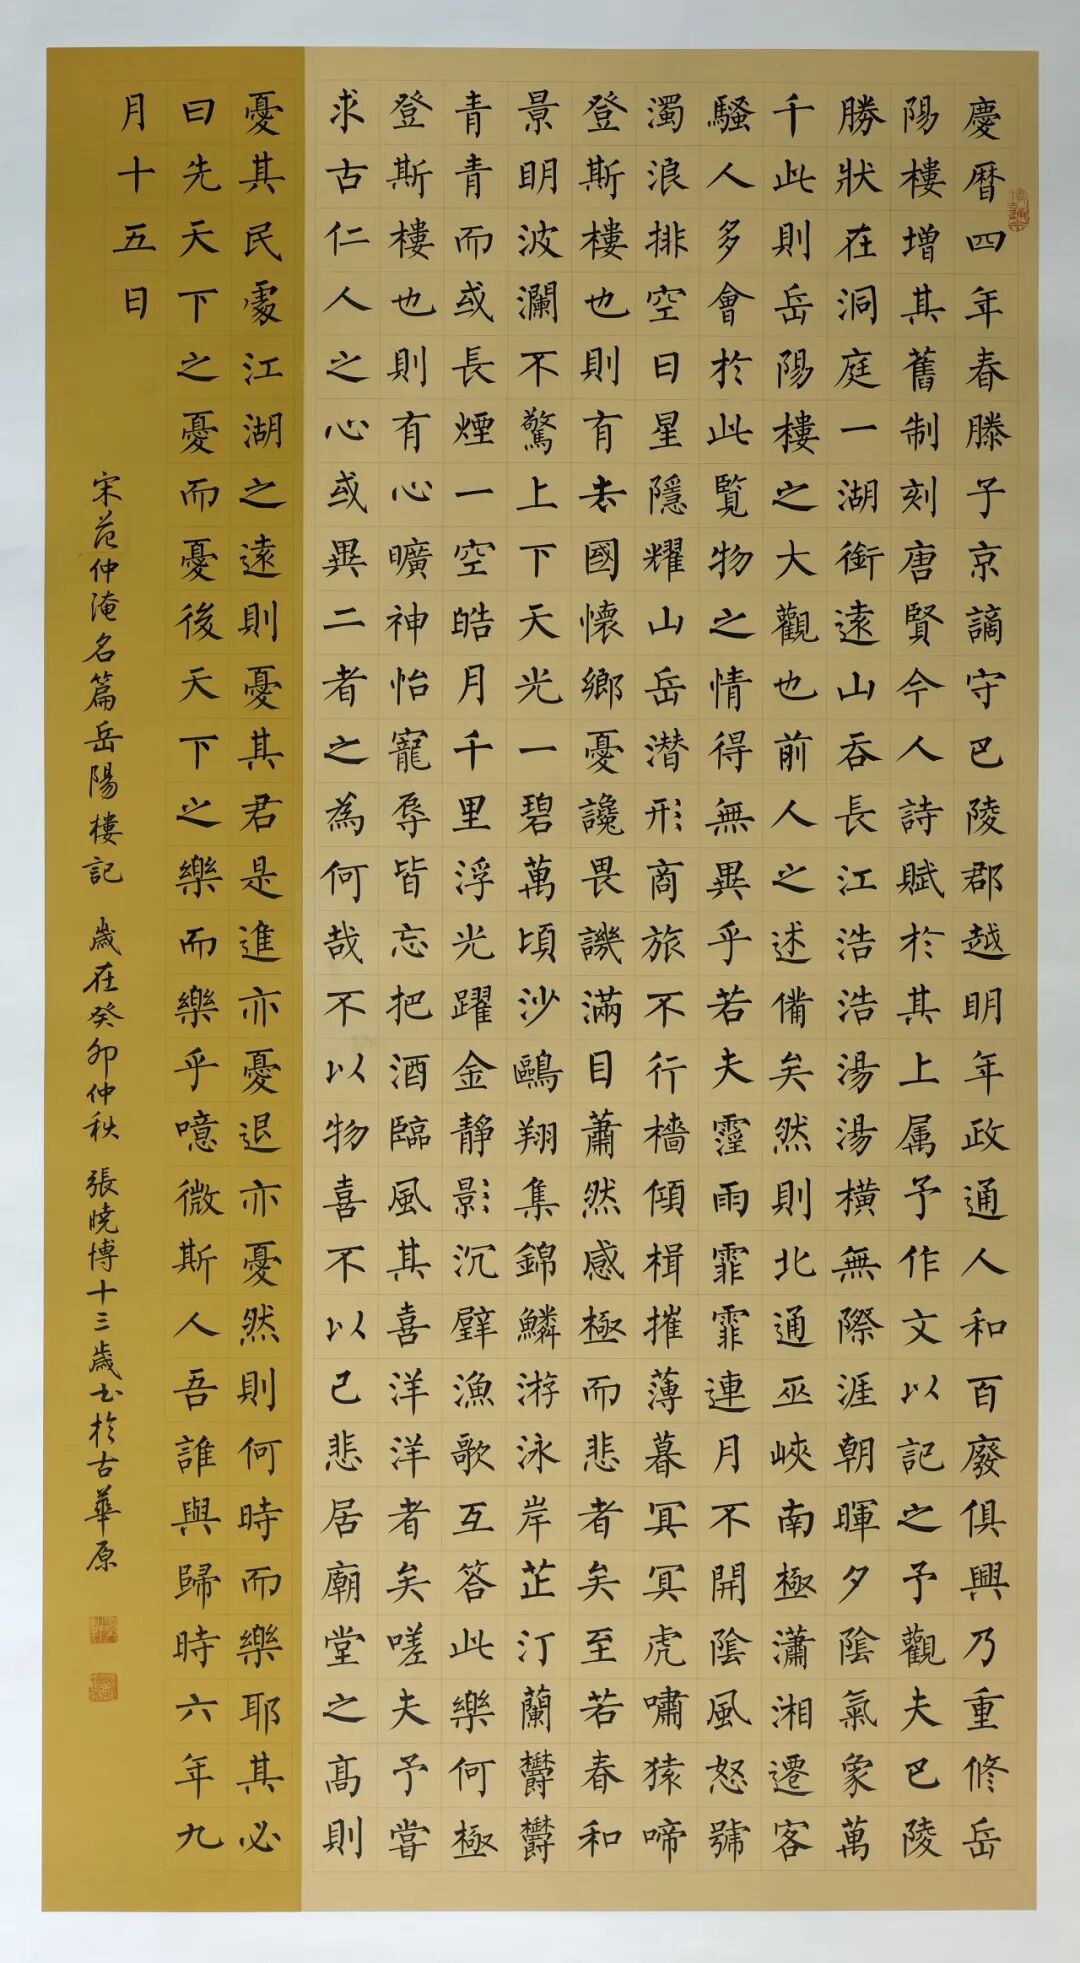 慶暦四年春滕子京謫守巴陵郡越明年政通人和百廢俱興乃重修岳
陽樓增其舊制刻唐賢今人詩賦於其上属予作文以記之予觀夫巴陵
勝狀在洞庭一湖銜遠山吞長江浩浩湯湯橫無際涯朝暉夕陰氣象萬
千此則岳陽樓之大觀也前人之述備矣然則北通巫峽南極瀟湘遷客
騷人多會於此覽物之情得無異乎若夫霪雨霏霏連月不開陰風怒號
濁浪排空日星隱耀山岳潛形商旅不行檣傾楫摧薄暮冥冥虎嘯猿啼
登斯樓也則有去國懷鄉憂讒畏譏滿目蕭然感極而悲者矣至若春和
景明波瀾不驚上下天光一碧萬頃沙鷗翔集錦鱗游泳岸芷汀蘭欝欝
青青而或長煙一空皓月千里浮光躍金靜影沉璧漁歌互答此樂何極
登斯樓也則有心曠神怡寵辱皆忘把酒臨風其喜洋洋者矣嗟夫予嘗
求古仁人之心或異二者之為何哉不以物喜不以己悲居廟堂之高則
憂其民處江湖之遠則憂其君是進亦憂退亦憂然則何時而樂耶其必
曰先天下之憂而憂後天下之樂而樂乎噫微斯人吾誰與歸時六年九
月十五日
宋范仲淹名篇岳陽樓記 歲在癸卯仲秋 張曉博十三歲書於古華原